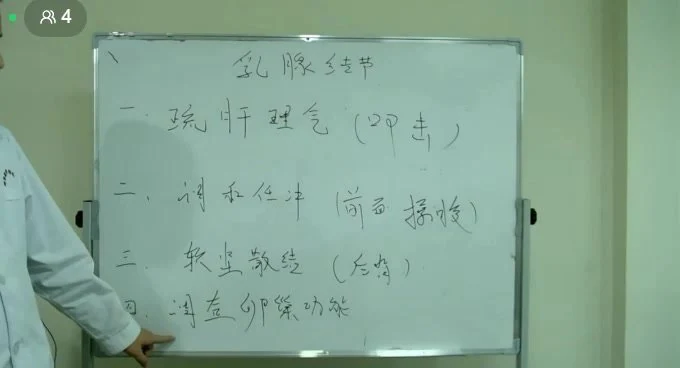 4
乳腺结节
一.疏肝理气(叩击)
二.调和任冲(前面操收)
三.软坚散结()
四.调查卵巢功能